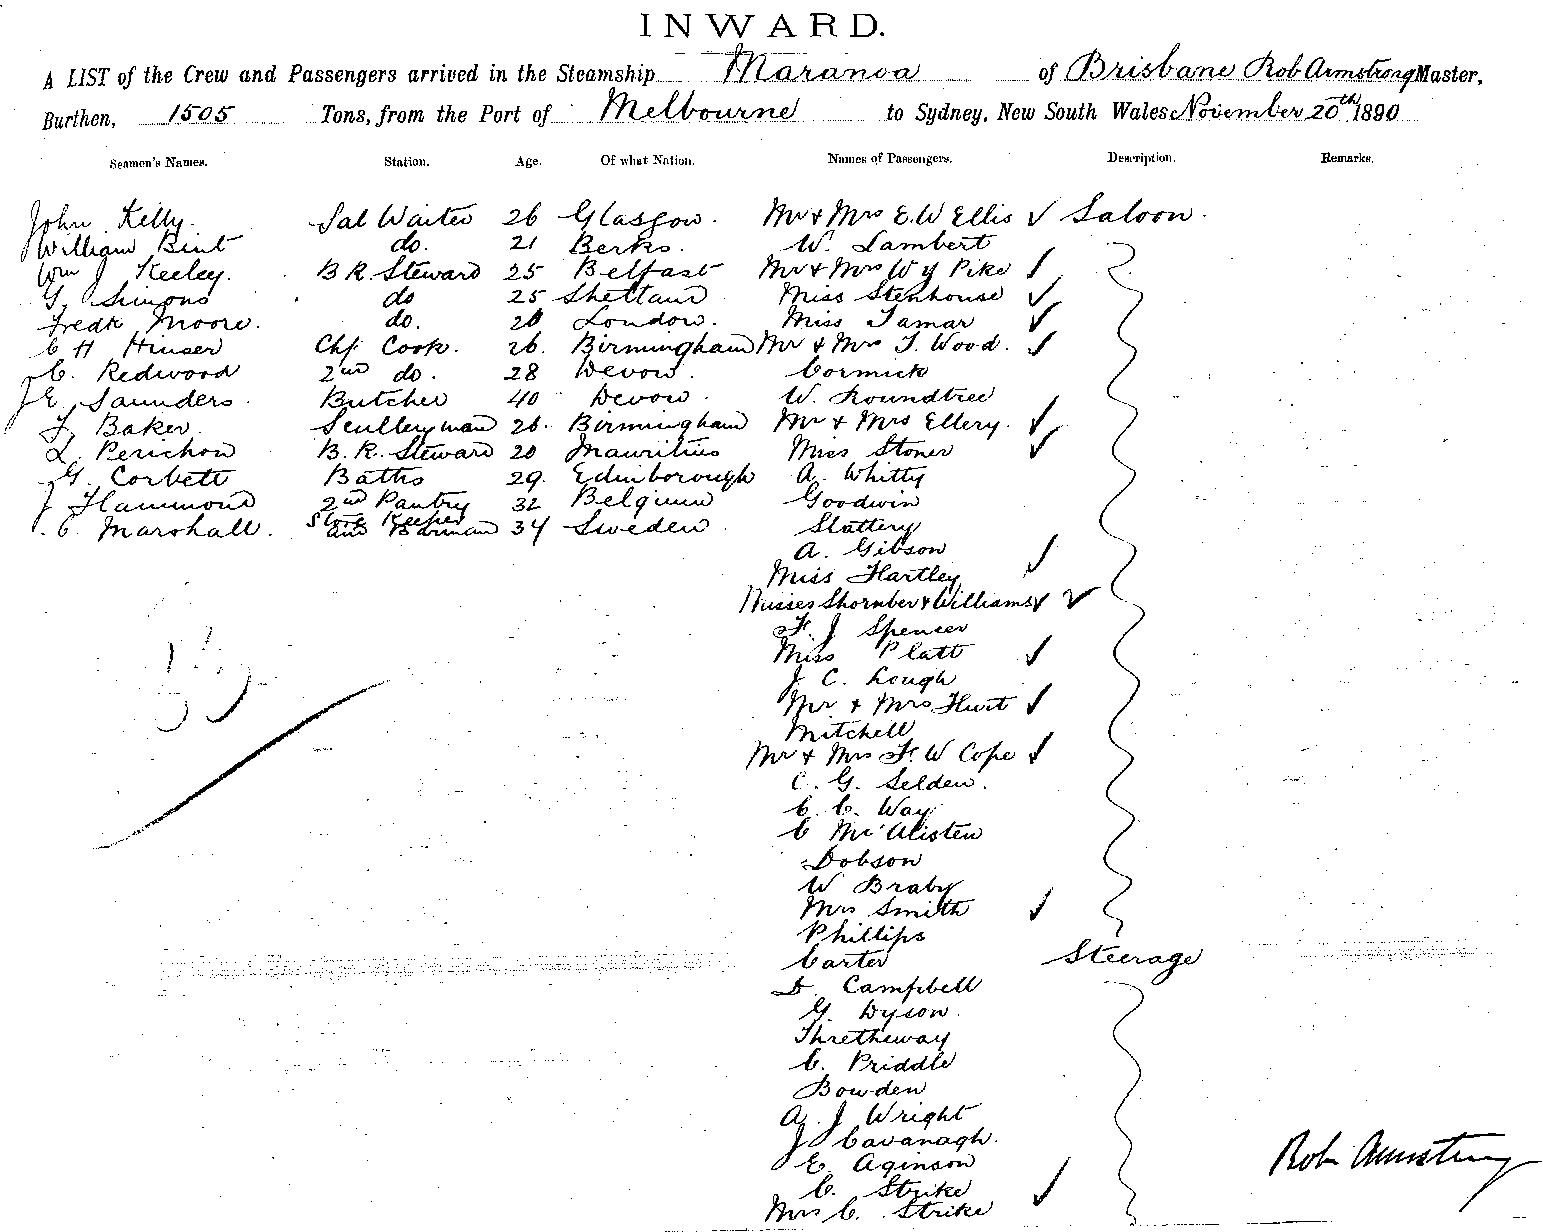 INWARD.
A LIST of the Crew and Passengers arrived in the Steamship Maranoa of Brisbane Rob Armstrong Master,
Burthen, 1505 Tons, from the Port of Melbourne to Sydney, New South Wales November 20th 1890
Seamen's Names. Station. Age. Of what Nation. Names of Passengers. Description. Remarks.
John Kelly. Sal Waiter 26 Glasgow. Mr & Mrs E.W Ellis ✓ Saloon.
William Bint do. 21 Berks. W. Lambert
Wm J Keeley. B.R. Steward 25 Belfast Mr & Mrs W J Pike ✓
G. Simons do 25 Shetland Miss Stenhouse ✓
Fredk Moore. do. 20 London. Miss Tamar ✓
C H Hinser Chf Cook. 26. Birmingham Mr & Mrs T. Wood. ✓
C. Redwood 2nd do. 28 Devon. Cormick
J E. Saunders. Butcher 40 Devon. W. Roundtree
F. Baker. Scullery man 26. Birmingham Mr & Mrs Ellery. ✓
L. Perichon B.R. Steward 20 Mauritius Miss Stoner ✓
G. Corbett Baths 29. Edinborough A. Whitty
J Hammond 2nd Pantry 32 Belgium Goodwin
C. Marshall. Store Keeper and Barman 34 Sweden Slattery
A. Gibson
Miss Hartley ✓
Misses Shornber & Williams ✓ ✓
F. J Spencer
Miss Platt ✓
J C. Lough
Mr & Mrs Hurt ✓
Mitchell
Mr & Mrs F. W Cope ✓
C. G. Selden.
C. C. Way
C McAlisten
Dobson
W Braby
Mrs Smith ✓
Phillips
Carter Steerage
D. Campbell
G. Dyson.
Thretheway
C. Priddle
Bowden
A. J Wright
J Cavanagh.
E. Aginson
C. Strike
Mrs C. Strike ✓
Rob Armstrong